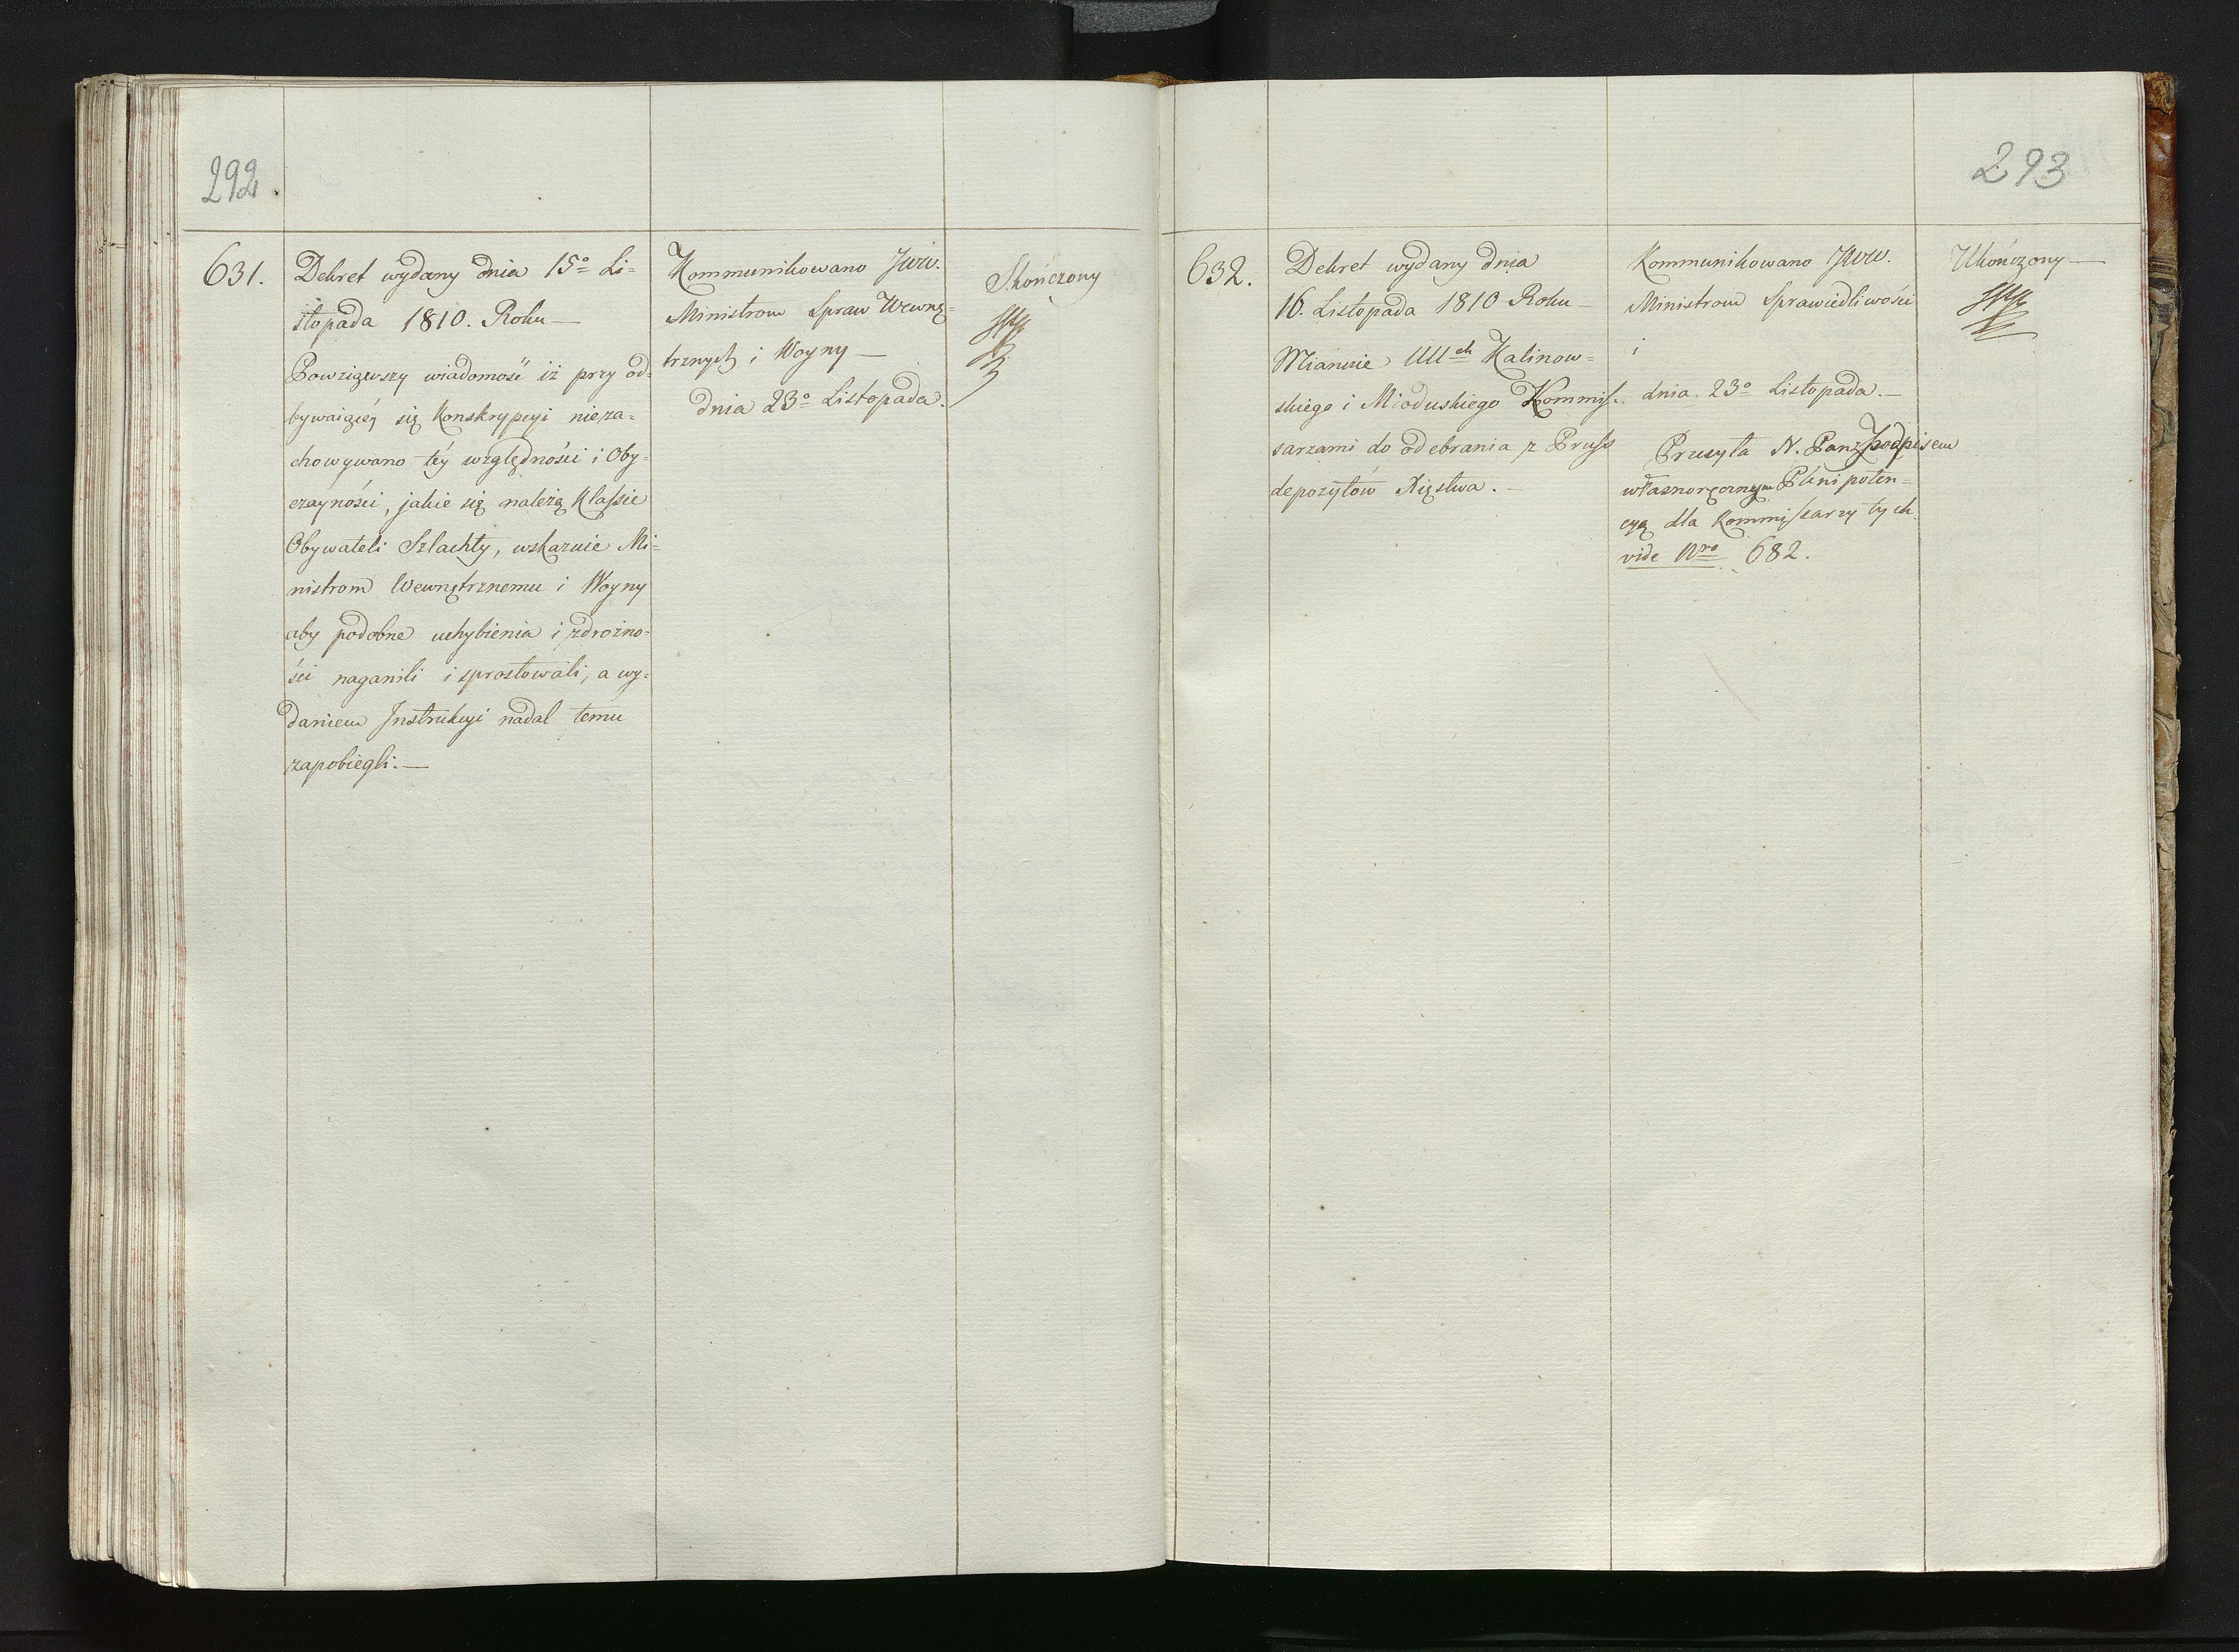 292.
631.
Dekret wydany dnia 15º Li=
stopada 1810. Roku —
Powziąwszy wiadomość iż przy od=
bywaiącéy się Konskrypcyi nieza=
chowywano téy względności i Oby=
czayności, jakie się należą Klassie
Obywateli Szlachty, wskazuie Mi=
nistrom Wewnętrznemu i Woyny
aby podobne uchybienia i zdrożno=
ści naganili i sprostowali, a wy=
daniem Instrukcyi nadal temu
zapobiegli. —
Kommunikowano JWW.
Ministrom Spraw Wewnę=
trznych i Woyny —
dnia 23º Listopada.
Skończony
293
632.
Dekret wydany dnia
16. Listopada 1810 Roku —
Mianuie UUch Kalinow=
skiego i Mioduskiego Kommis=
sarzami do odebrania z Pruss
depozytów Xięstwa. —
Kommunikowano JWW.
Ministrom Sprawiedliwości
i
dnia 23º Listopada. —
Przesyła N. Pan z podpisem
własnoręcznym Plenipoten=
cyą dla Kommissarzy tych
vide Nro 682.
Ukończony —